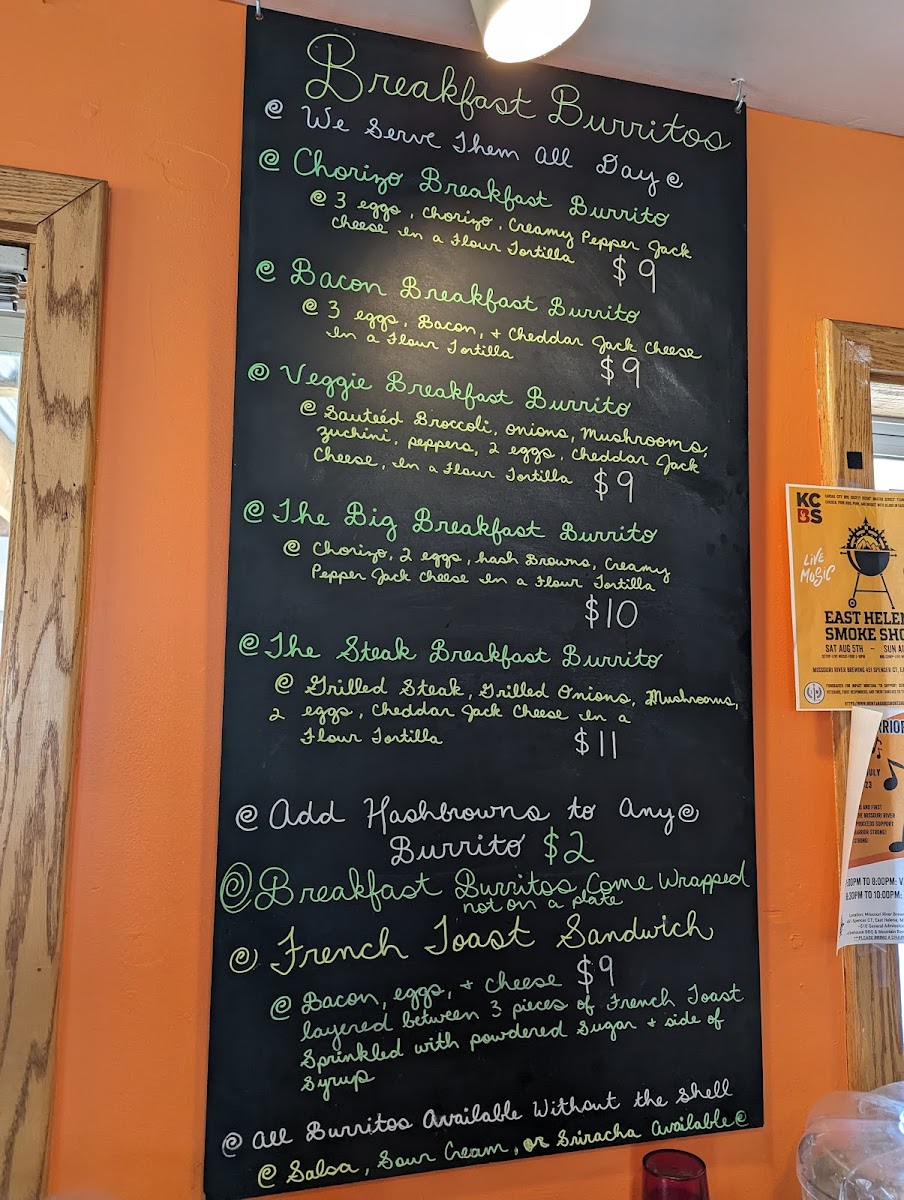 Breakfast Burritos
We Serve Them All Day
Chorizo Breakfast Burrito
3 eggs, Chorizo, Creamy Pepper Jack
Cheese In a Flour Tortilla
$9
Bacon Breakfast Burrito
3 eggs, Bacon, + Cheddar Jack Cheese
In a Flour Tortilla
$9
Veggie Breakfast Burrito
Sauteéd Broccoli, onions, Mushrooms,
zuchini, peppers, 2 eggs, Cheddar Jack
Cheese, In a Flour Tortilla $9
The Big Breakfast Burrito
Chorizo, 2 eggs, hash Browns, Creamy
Pepper Jack Cheese In a Flour Tortilla
$10
The Steak Breakfast Burrito
Grilled Steak, Grilled Onions, Mushrooms,
2 eggs, Cheddar Jack Cheese In a
Flour Tortilla $11
Add Hashbrowns to Any
Burrito $2
Breakfast Burritos Come Wrapped
not on a plate
French Toast Sandwich
Bacon, eggs, + cheese $9
layered between 3 pieces of French Toast
Sprinkled with powdered Sugar + side of
Syrup
All Burritos Available Without the Shell
Salsa, Sour Cream, or Sriracha Available
KC
BS
LIVE
MUSIC
EAST HELEN
SMOKE SHO
SAT AUG 5TH - SUN AU
MISSOURI RIVER BREWING 451 SPENCER CT, E
RRIOR
JULY
23